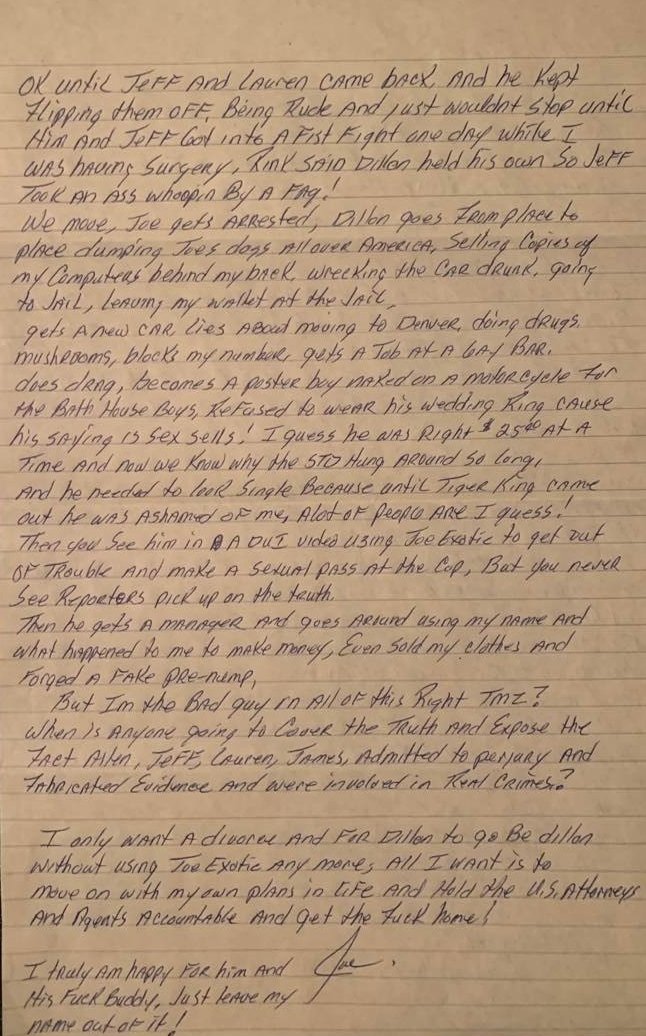 OK until Jeff And Lauren came back, And he kept
Flipping them off, Being Rude And just wouldnt stop until
Him And Jeff Got into A Fist Fight one day while I
was having Surgery, Rink said Dillon held his own so Jeff
Took An Ass whoopin By A Fag!
We move, Joe gets Arrested, Dillon goes from place to
place dumping Joes dogs all over America, Selling Copies of
my Computers behind my back, wrecking the car drunk, going
to Jail, leaving my wallet at the Jail,
gets A new car lies About moving to Denver, doing drugs,
mushrooms, blocks my number, gets A Job At A Gay Bar,
does drag, becomes A poster boy naked on A motorcycle for
the Bath House Boys, Refused to wear his wedding Ring cause
his saying is Sex sells! I guess he was Right $25.00 At A
Time And now we know why the STD Hung Around so long,
And he needed to look Single Because until Tiger King came
out he was Ashamed of me, Alot of people Are I guess!
Then you see him in A DUI video using Joe Exotic to get out
of Trouble and make A Sexual pass At the Cop, But you never
See Reporters pick up on the truth.
Then he gets A manager And goes Around using my name And
what happened to me to make money, Even Sold my clothes And
Forged A Fake pre-nump,
But Im the Bad guy in All of this Right TMZ?
When is Anyone going to Cover the Truth And Expose the
Fact Allen, Jeff, Lauren, James, Admitted to perjury And
Fabricated Evidence And were involved in Real Crimes?
I only want A divorce And For Dillon to go Be dillon
without using Joe Exotic Any more, All I want is to
move on with my own plans in life And Hold the U.S. Attorneys
And Agents Accountable And get the Fuck home!
I truly Am happy For him And
His Fuck Buddy, Just leave my
name out of it!
Joe.